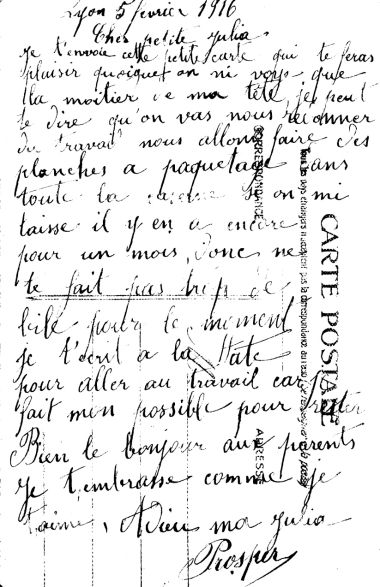 Lyon 5 fevrier 1916
Cher petite Julia
Je t'envoie cette petite carte qui te feras
plaisir quoiquet on ni voys que
lla moitier de ma tête, je peut
te dire qu'on vas nous redonner
du travail nous allons faire des
planches a paquetage dans
toute la caserne si on mi
laisse il y en a encore
pour un mois, donc ne
te fait pas trop de
bile pour le moment
je t'écrit a la Hate
pour aller au travail car je
fait mon possible pour rester
Bien le bonjour aux parents
Je t'embrasse comme je
t'aime, Adieu ma Julia
Prosper
CARTE POSTALE
CORRESPONDANCE
ADRESSE